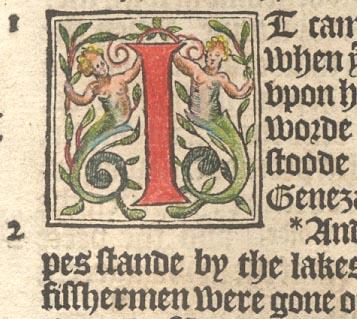 1 IT cam
when yͤ
vpon h
worde
stoode
Geneza
2 *And
pes stande by the lakes
fisshermen were gone o